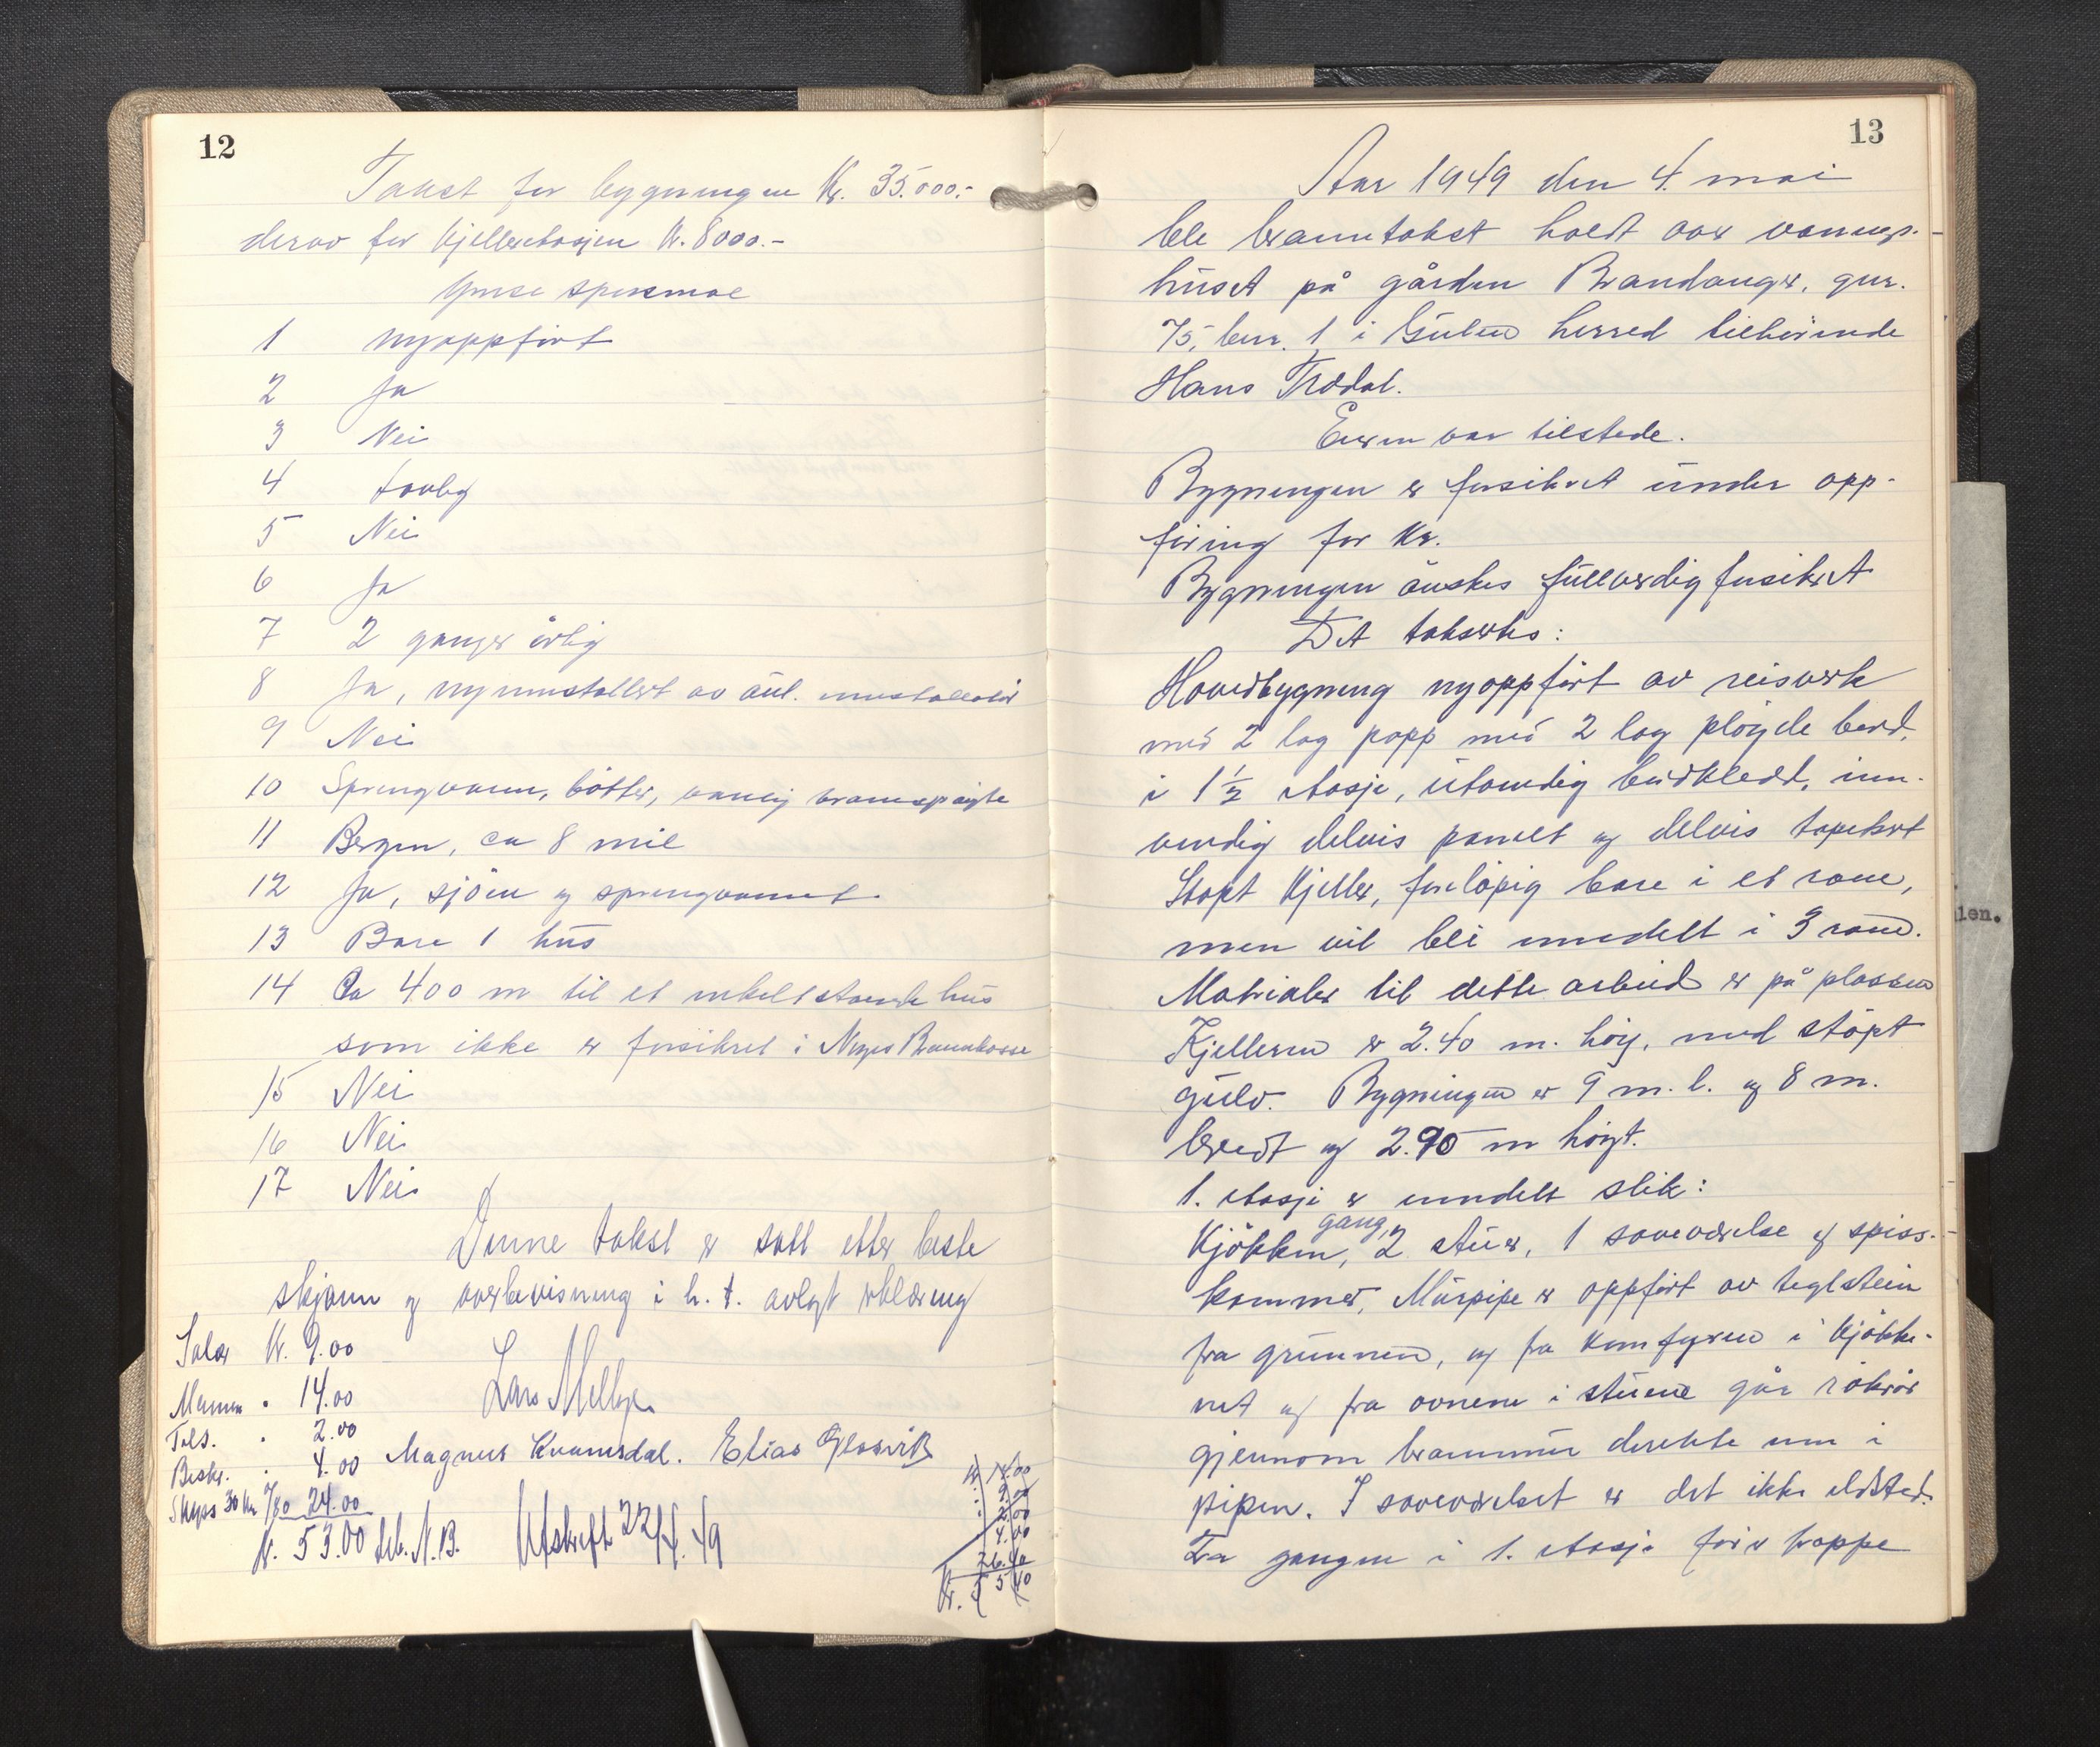 12
Takst for bygningen Kr. 35.000.-
derav for kjelleretasjen Kr. 8000.-
Ymse spursmål
1 nyoppfört
2 Ja
3 Nei
4 tvoleg
5 Nei
6 Ja
7 2 ganger årlig
8 Ja, nyinnstallert av aut. innstallatör
9 Nei
10 Springvann, bötter, vanlig brannspröyte
11 Bergen, ca 8 mil
12 Ja, sjöen og springvannet.
13 Bare 1 hus
14 Ca 400 m til et enkeltstående hus
som ikke er forsikret i Norges Brannkasse
15 Nei
16 Nei
17 Nei
Denne takst er satt etter beste
skjönn og overbevisning i h. t. avlagt erklæring
Salær Kr. 9.00
Lars Mellbye
14.00
2.00
Magnus Kvamsdal. Elias Glosvik
Beskr. 4.00
Skyss 30 km /80 24.00
Kr. 53.00 deb. N.B. Utskrift 22/4. 49
Kr. 14.00
9.00
2.00
4.00
26.40
Kr. 55 40
13
Aar 1949 den 4. mai
ble branntakst holdt over vånings-
huset på gården Brandanger, gnr.
75, bnr. 1 i Gulen herred tilhörende
Hans Trædal.
Eieren var tilstede.
Bygningen er forsikret under opp-
föring for Kr.
Bygningen önskes fullverdig forsikret
Det taksertes:
Hovedbygning nyoppfört av reisverk
med 2 lag papp med 2 lag plöyde bord,
i 1½ etasje, utvendig bordkledt, inn-
vendig delvis panelt og delvis tapetsert
Stöpt kjeller, foreløpig bare i et rom,
men vil bli inndelt i 3 rom.
Matrialer til dette arbeid er på plassen
Kjelleren er 2.40 m. höy, med stöpt
gulv. Bygningen er 9 m. l. og 8 m.
bredt og 2.90 m höyt.
1. etasje er inndelt slik:
Kjökken, gang, 2 stuer, 1 soveværelse og spiss-
kammer, Murpipe er oppfört av teglstein
fra grunnen, og fra komfyren i kjökke-
net og fra ovnene i stuene går rökrör
gjennom brannmur direkte inn i
pipen. I soveværelset er det ikke ildsted.
Fra gangen i 1. etasje förer trappe
len.